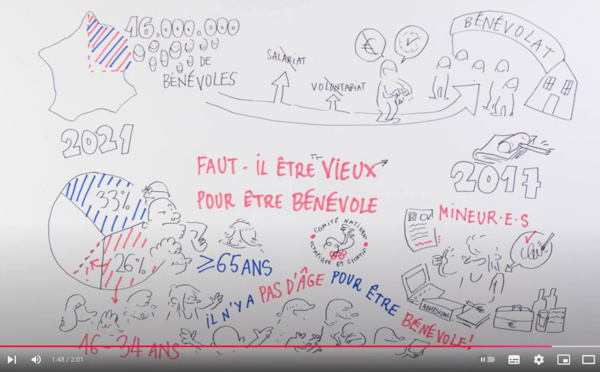 16.000.000
DE
BÉNÉVOLES
SALARIAT
VOLONTARIAT
€
BÉNÉVOLAT
2021
FAUT-IL ÊTRE VIEUX
POUR ÊTRE BÉNÉVOLE
2017
33%
26%
≥65 ANS
16-34 ANS
COMITÉ NATIONAL
OLYMPIQUE ET SPORTIF
CV
MINEUR·E·S
ADHÉSION
IL N'Y A PAS D'ÂGE POUR ÊTRE BÉNÉVOLE!
1:48 / 2:01